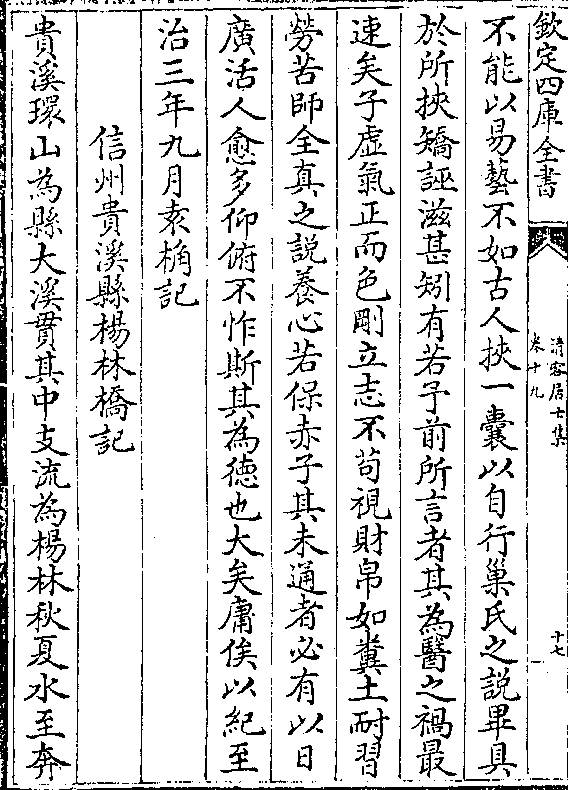 欽定四庫全書
清容居士集
卷十九
十七
不能以易藝不如古人挾一囊以自行巢氏之説畢具
於所挾矯誣滋甚矧有若子前所言者其為醫之禍最
速矣子虛氣正而色剛立志不苟視財帛如糞土耐習
勞苦師全真之說養心若保赤子其未通者必有以日
廣活人愈多仰俯不怍斯其為徳也大矣庸俟以紀至
治三年九月袁桷記
信州貴溪縣楊林橋記
貴溪環山為縣大溪貫其中支流為楊林秋夏水至奔